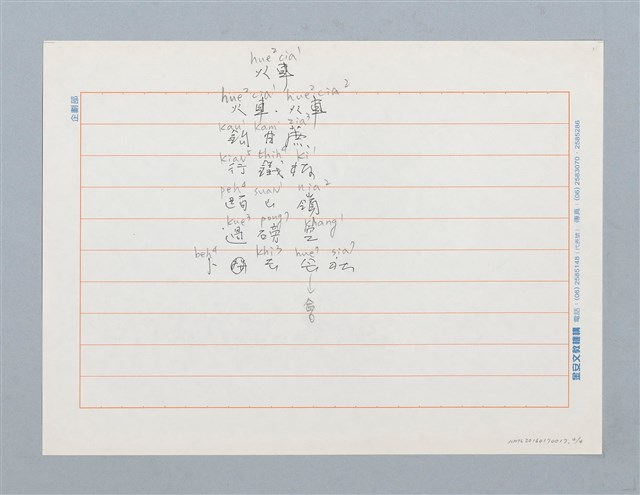 hue² cia¹
火車
hue² cia¹ hue² cia²
火車．火車
kau¹ kam¹ zia³
鉤甘蔗
kian⁵ thih⁴ ki¹
行鐵枝
peh⁴ suan¹ nia²
山嶺
kue³ pong³ khang¹
過磅空
beh⁴ khi³ hue⁷ sia⁷
卜 去会社
會
企劃部
金安文教機構 電話：(06) 2585148（代表號） 傳真：(06) 2583070．2585286